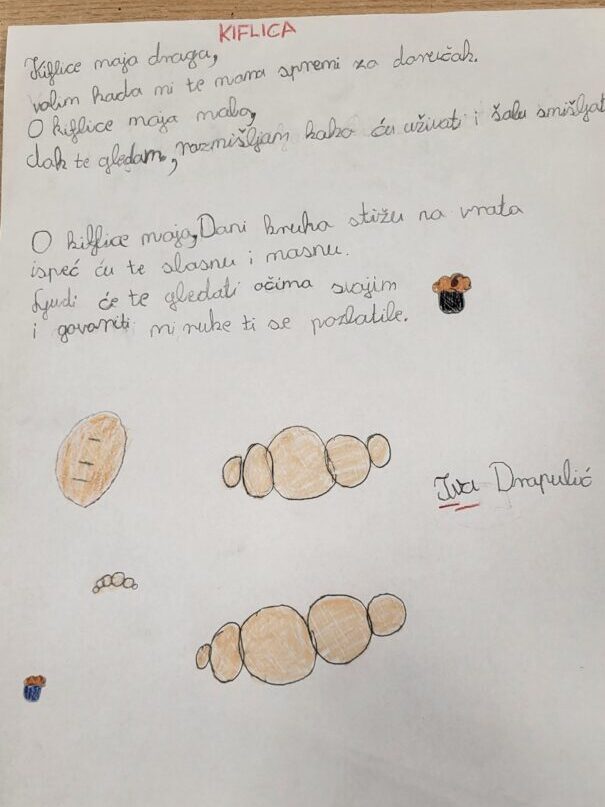 KIFLICA
Kiflice moja draga,
volim kada mi te mama spremi za doručak.
O kiflice moja mala,
dok te gledam, razmišljam kako ću uživati i šalu smišljat
O kiflice moja, Dani kruha stižu na vrata
ispeć ću te slasnu i masnu.
Ljudi će te gledati očima svojim
i govoriti mi ruke ti se pozlatile.
Iva Drapulić